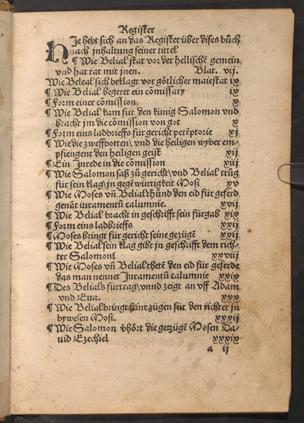 Register
Je hebt sich an das Register über dises bůch
nach inhaltung seiner tittel
¶ Wie Belial stat vor der hellischē gemein
vnd hat rat mit jnen. Blat. vij.
Wie Belial sich beklagt vor götlicher maiestat ix
¶ Wie Belial begeret ein cōmissary ix
¶ Form einer cōmission x
¶ Wie Belial kam für den künig Salomon vnd
bracht jm die cōmission von got x
¶ Form eins ladbrieffs für gericht perēptorie xj
¶ Wie die zwelffbotten, vnd die heiligen wyber em-
pfiengent den heiligen geist xij
¶ Ein inrede in die cōmission xij
¶ Wie Salomon saß zů gericht, vnd Belial trůg
für sein klag in gegēwirtigkeit Mosi xv
¶ Wie Moses vn̄ Belial
genāt iuramentū calumnie. xvj
¶ Wie Belial bracht in geschrifft sein fürgab xix
¶ Form eins ladbrieffs xxj
¶ Moses bringt für gericht seine gezügē xxvj
¶ Wie Belial sein klag gibt in geschrifft dem rich-
ter Salomoni xxviij
¶ Wie Moses vn̄ Belial thetē den eid für geferde
das man nennet Juramentū calumnie xxix
¶ Des Belials fürtrag vnnd zeigt an vff Adam
vnd Eua. xxx
¶ Wie Belial bringt zügen für den richter in
bywesen Mosi. xxxij
¶ Wie Salomon vhört die getzügē Mosen Da-
uid Ezechiel xxxix
a ij